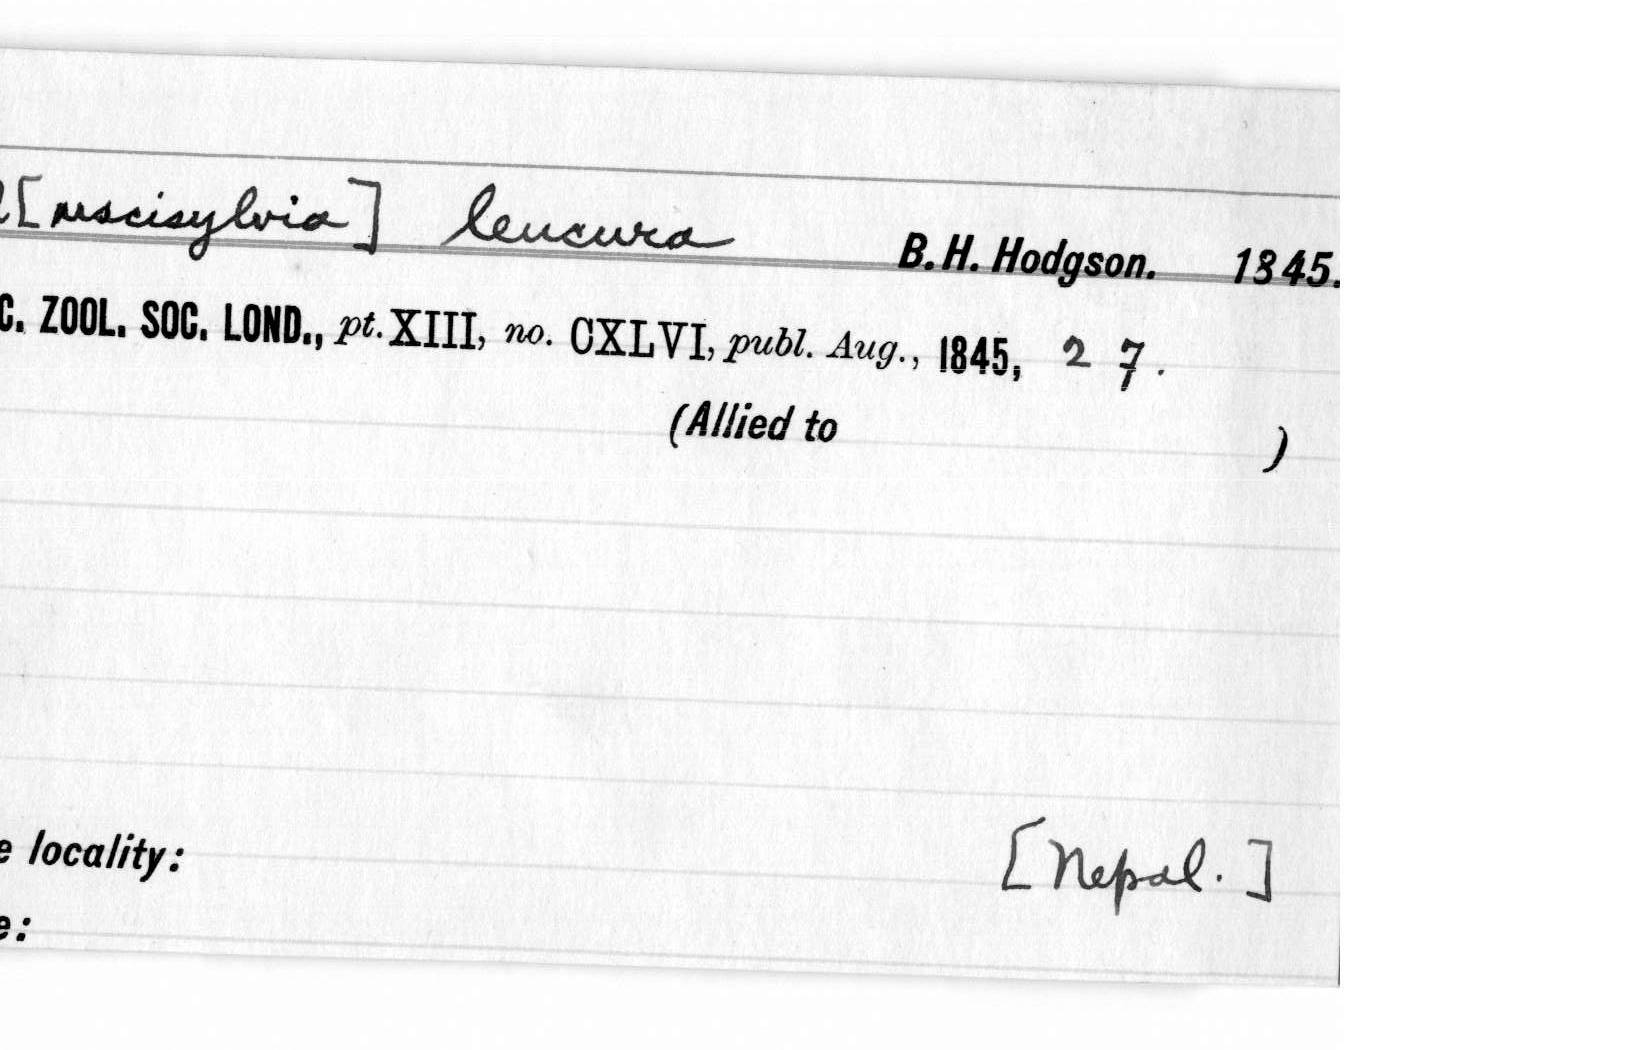 [uscisylvia] leucura B. H. Hodgson. 1845.
C. ZOOL. SOC. LOND., pt. XIII, no. CXLVI, publ. Aug., 1845, 27.
(Allied to )
e locality: [Nepal.]
e: